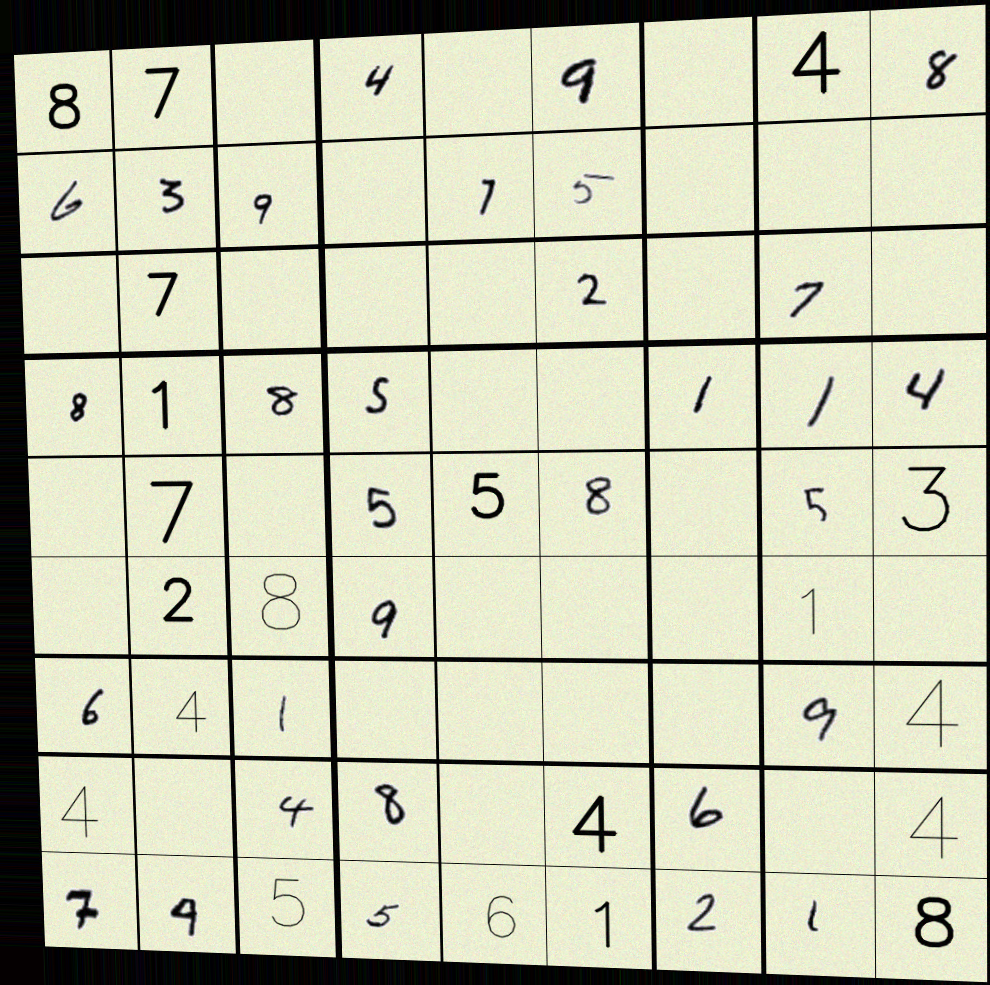 8 7 4 9 4 8
6 3 9 7 5
7 2 7
8 1 8 5 1 1 4
7 5 5 8 5 3
2 8 9 1
6 4 1 9 4
4 4 8 4 6 4
7 9 5 5 6 1 2 1 8